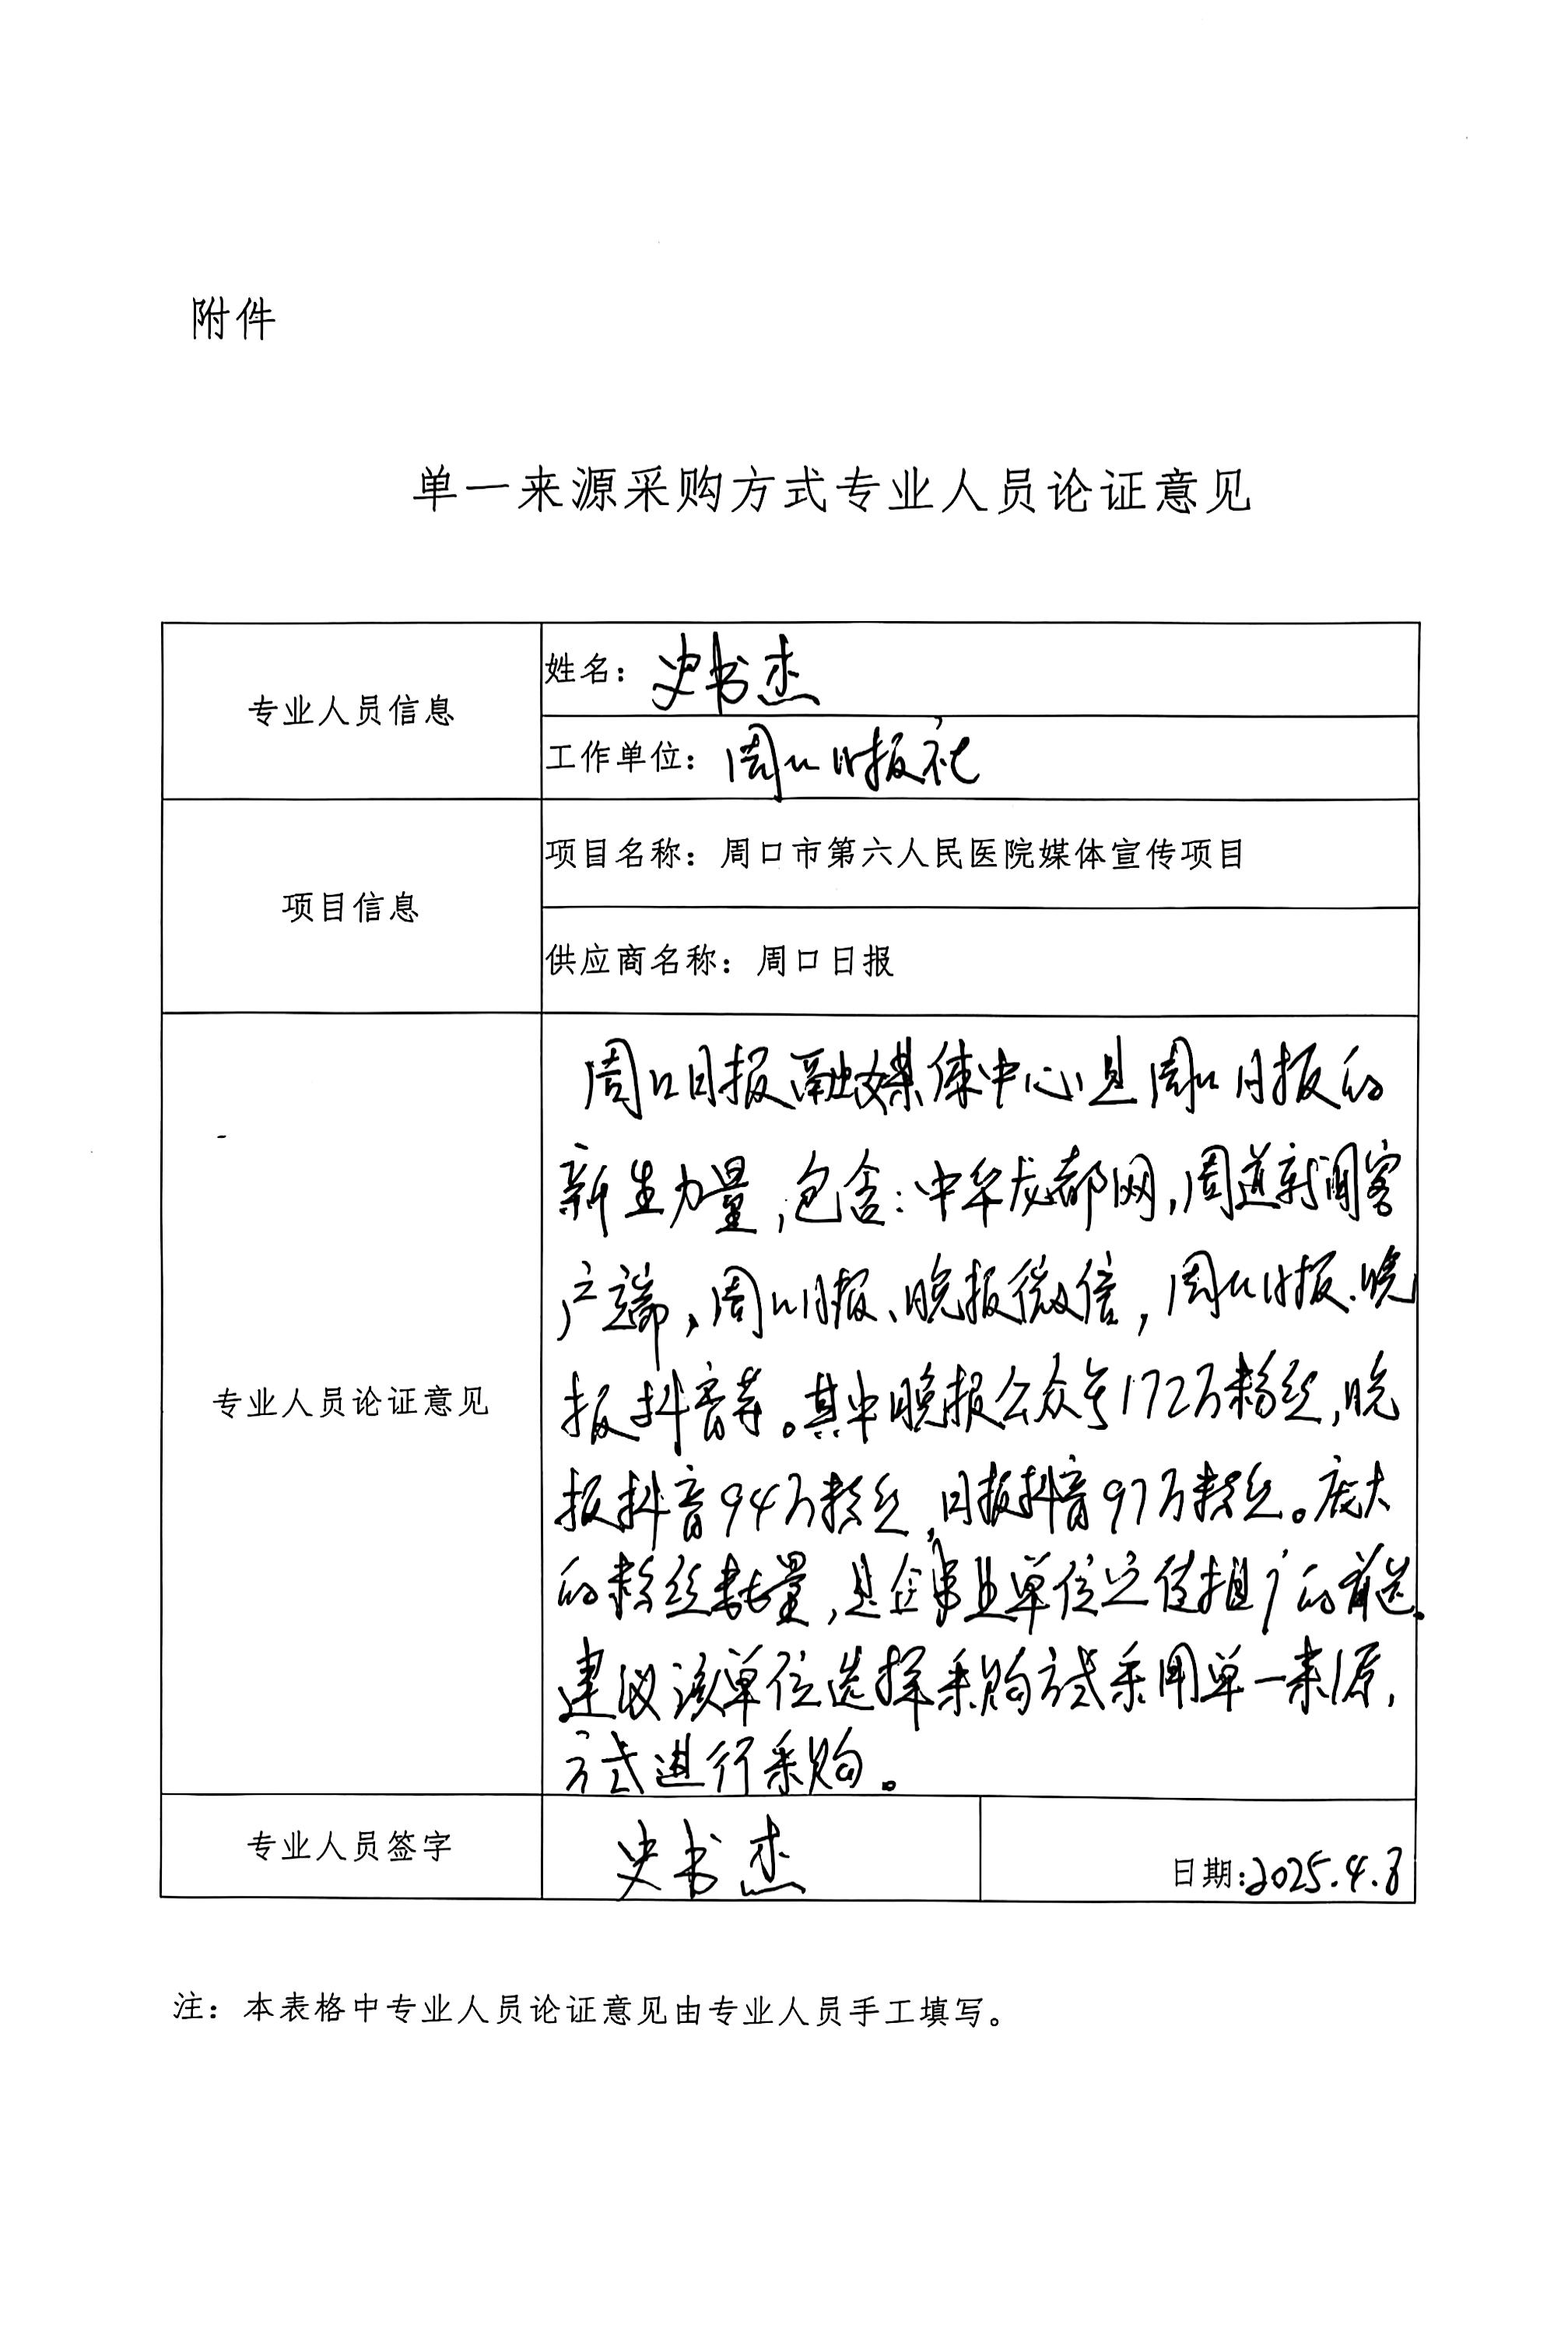 附件
单一来源采购方式专业人员论证意见
专业人员信息
姓名：史书杰
工作单位：周口日报社
项目信息
项目名称：周口市第六人民医院媒体宣传项目
供应商名称：周口日报
专业人员论证意见
周口日报融媒体中心是周口日报的
新生力量，包含：中华龙都网，周道新闻客
户端，周口日报、晚报微信，周口日报、晚
报抖音等。其中晚报公众号172万粉丝，晚
报抖音94万粉丝，日报抖音97万粉丝。庞大
的粉丝数量，是企事业单位宣传推广的首选。
建议该单位选择采购方式采用单一来源，
方式进行采购。
专业人员签字
史书杰
日期：2025.4.8
注：本表格中专业人员论证意见由专业人员手工填写。